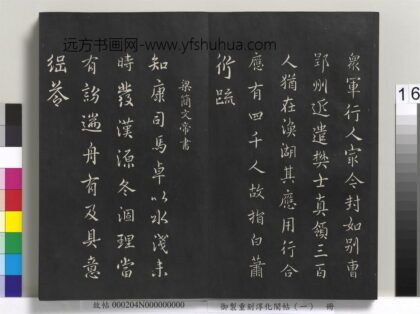 远方书画网-www.yfshuhua.com
眾軍行人家令封如別曹
郢州近遣樊士真領三百
人猶在溳湖其應用行合
應有四千人故指白蕭
衍疏
梁簡文帝書
知康司馬卓以水淺未
時發漢源冬涸理當
有訪遄舟有及具意
綱答
16
故帖 000204N000000000
御製重刻淳化閣帖(一) 冊